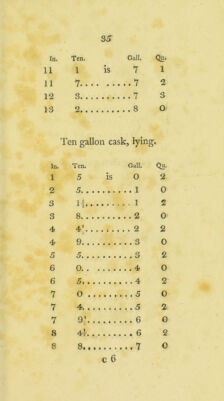 35
In. Ten. Gall. Qu.
11 1 is 7 1
11 7.......... 7 2
12 3.......... 7 3
13 2.......... 8 0
Ten gallon cask, lying.
In. Ten. Gall. Qu.
1 5 is 0 2
2 5.......... 1 0
3 1½.......... 1 2
3 8.......... 2 0
4 4½.......... 2 2
4 9.......... 3 0
5 5.......... 3 2
6 0.......... 4 0
6 5.......... 4 2
7 0.......... 5 0
7 4.......... 5 2
7 9½.......... 6 0
8 4½.......... 6 2
8 8.......... 7 0
c 6